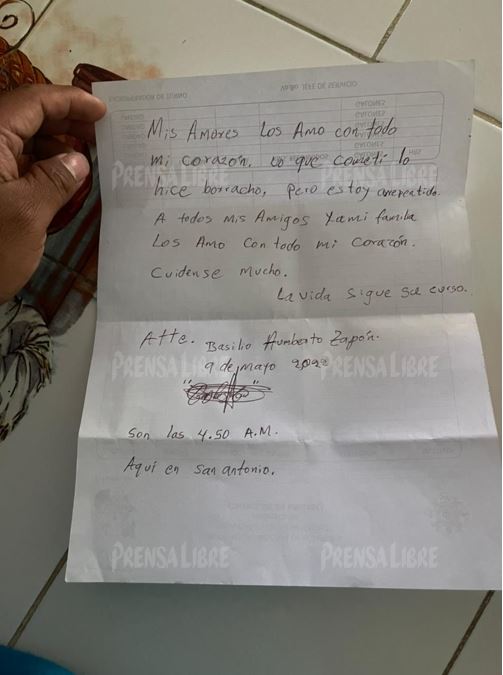 Mis Amores Los Amo con todo
mi corazón. Lo que cometí lo
hice borracho, pero estoy arrepentido.
A todos mis Amigos y ami familia
Los Amo con todo mi corazón.
Cuidense mucho.
La vida sigue su curso.
Atte. Basilio Humberto Zapón.
9 de mayo 2022
son las 4.50 A.M.
Aquí en san antonio.
PRENSA LIBRE
PRENSA LIBRE
PRENSA LIBRE
PRENSA LIBRE
PRENSA LIBRE
PRENSA LIBRE